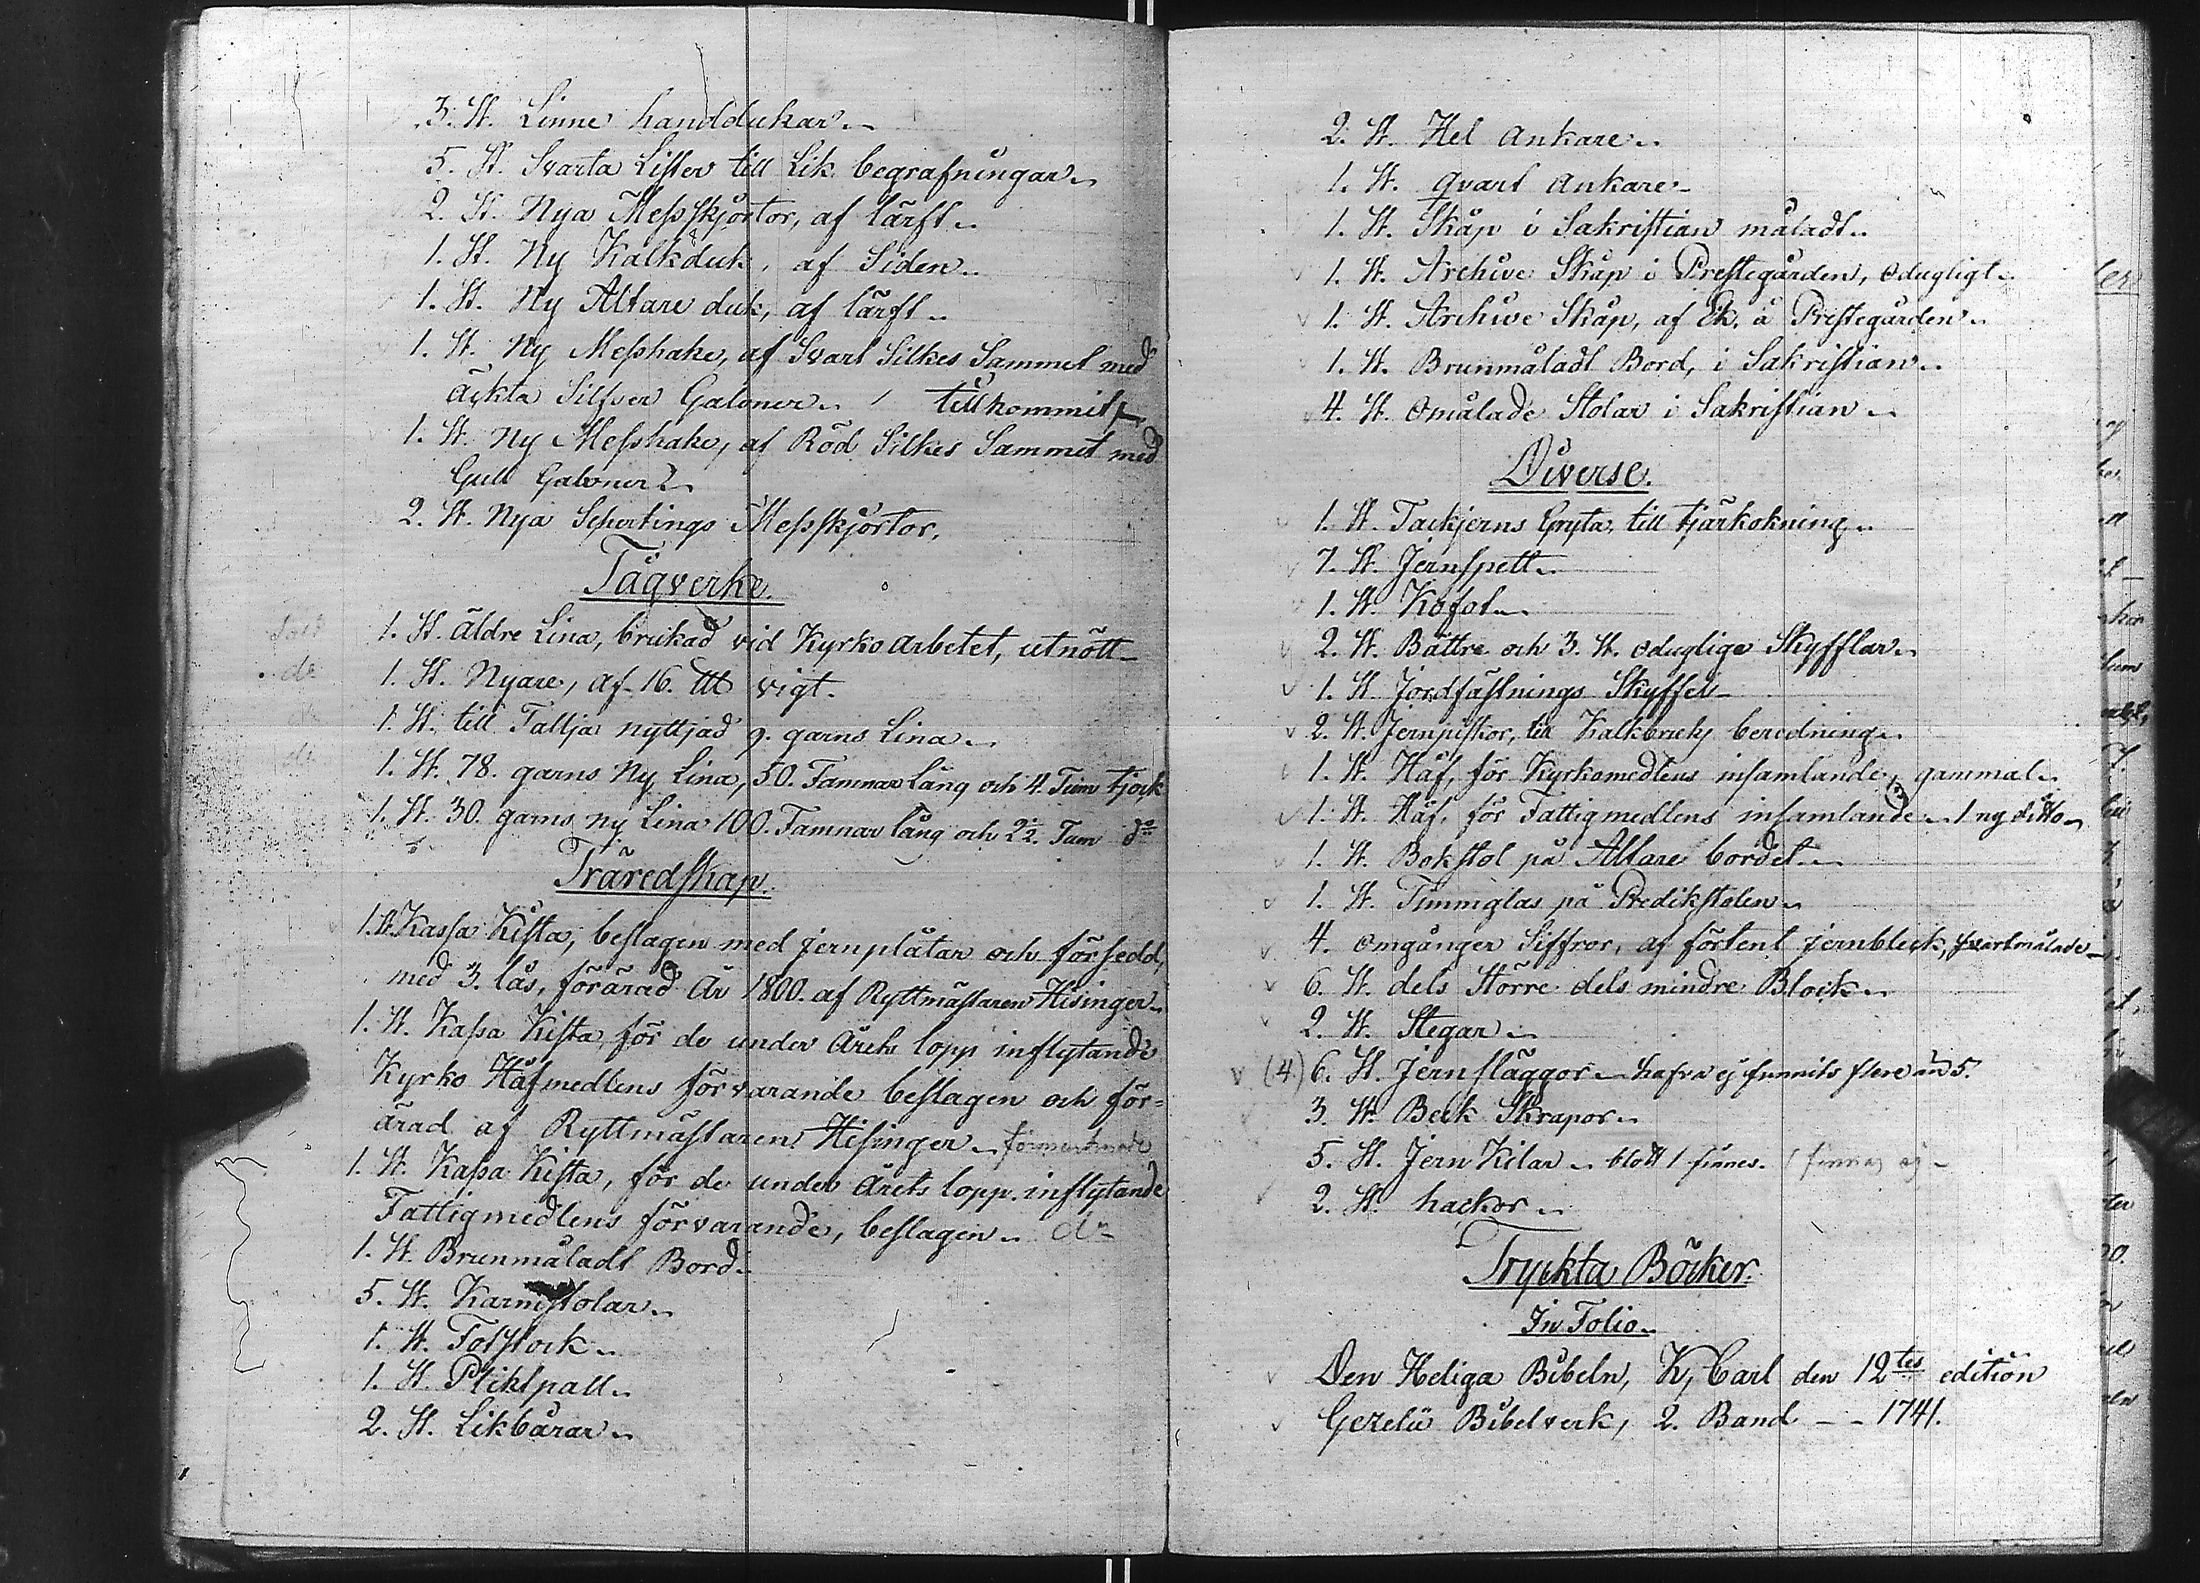 3. St. Linne handdukar.
5. St. Svarta Lister till Lik begrafningar.
2. St. Nya Messskjortor, af lärft.
1. St. Ny Kalkduk, af Siden.
1. St. Ny Altare duk, af lärft.
1. St. Ny Messhake, af Svart Silkes Sammet med
äckta Silfver Galoner. tillkommit
1. St. Ny Messhake, af Röd Silkes Sammet med
Gull Galoner
2. St. Nya Schertings Messskjortor.
Tågverke.
1. St. äldre Lina, brukad vid Kyrko arbetet, utnött
1. St. Nyare, af 16. ℔ vigt.
1. St. till Tallja nyttjad 9. garns Lina.
1. St. 78. garns Ny Lina, 50. Famnar lång och 4. Tum tjock
1. St. 30. garns ny Lina 100. Famnar lång och 2½. Tum do
Träredskap.
1. St. Kassa Kista, beslagen med jernplåtar och försedd,
med 3. lås, förärad År 1800. af Ryttmästaren Hisinger.
1. St. Kassa Kista, för de under Årets lopp inflytande
Kyrko Håfmedlens förvarande beslagen och för=
ärad af Ryttmästaren Hisinger.
1. St. Kassa Kista, för de under Årets lopp inflytande
Fattigmedlens förvarande, beslagen. do
1. St. Brunmåladt Bord.
5. St. Karmstolar.
1. St. Fotstock.
1. St. Pliktpall.
2. St. Likbårar.
2. St. Hel Ankare.
1. St. qvart Ankare.
1. St. Skåp i Sakristian måladt.
1. St. Archive Skåp i Prestegården, odugligt.
1. St. Archive Skåp, af Ek, å Prestegården.
1. St. Brunmåladt Bord, i Sakristian.
4. St. Omålade Stolar i Sakristian.
Diverse.
1. St. Tackjerns Gryta, till tjärkokning.
7. St. Jernspett.
1. St. Kofot.
2. St. Bättre och 3. St. odugliga Skyfflar.
1. St. Jordfästnings Skyffel
2. St. Jernpiskor, till Kalkbruks beredning.
1. St. Håf, för Kyrkomedlens insamlande, gammal.
1. St. Håf, för Fattigmedlens insamlande. 1 ny ditto
1. St. Bokstol på Altare bordet.
1. St. Timmglas på Predikstolen.
4. Omgånger Siffror, af förtent jernbleck, svartmålade
6. St. dels Större dels mindre Block.
2. St. Stegar.
(4.) 6. St. Jernsläggor. hafva ej funnits flere än 5.
3. St. Beck Skrapor.
5. St. Jern Kilar. blott 1 finnes. 1 finnes ej
2. St. hackor.
Tryckta Böcker.
In Folio.
Den Heliga Bibeln, K, Carl den 12tes edition
Gezelii Bibelverk, 2. Band — 1741.